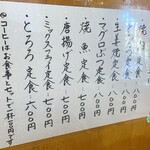 焼
・生姜焼定食 八〇〇円
・マグロぶつ定食 八〇〇円
・焼魚定食 七〇〇円
・唐揚げ定食 七〇〇円
・ミックスフライ定食 七〇〇円
・とろろ定食 六〇〇円
◎コーヒーはお食事とセットで一杯